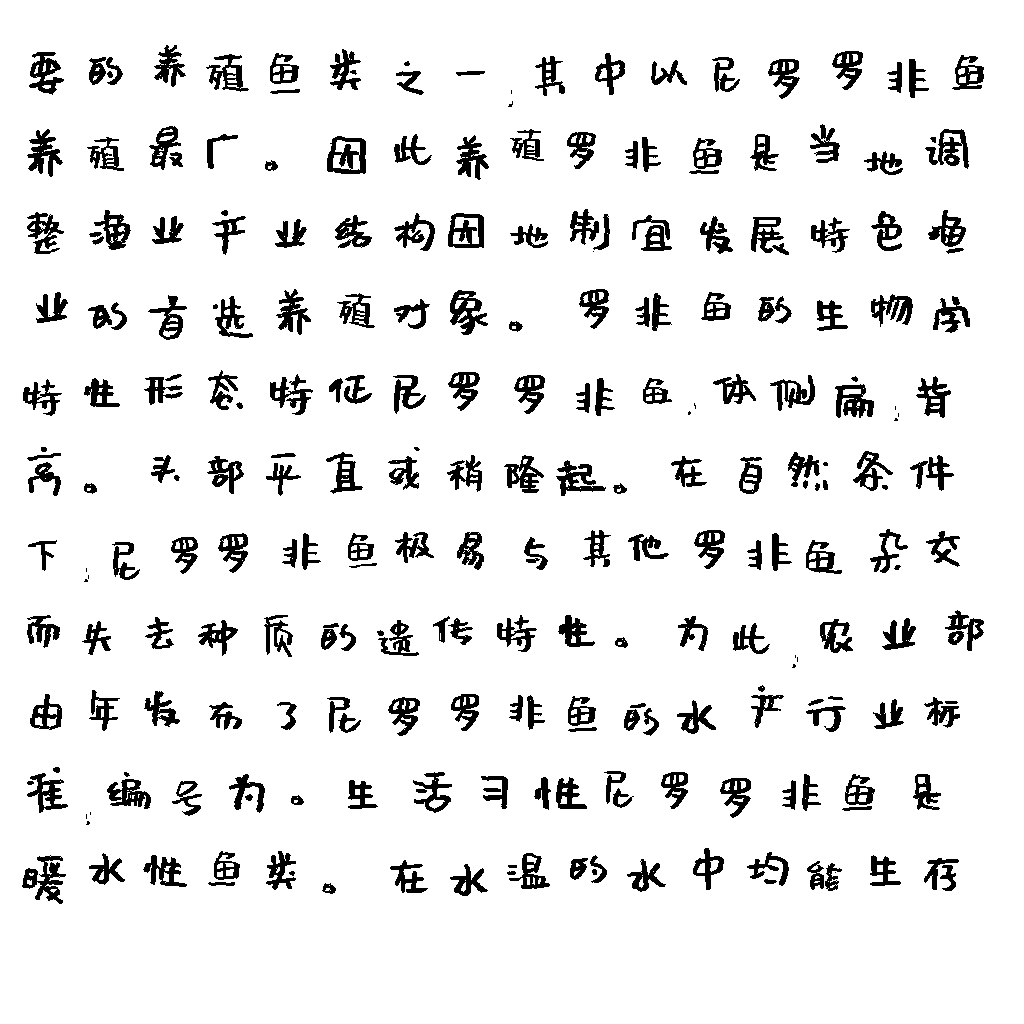 要的养殖鱼类之一,其中以尼罗罗非鱼
养殖最广。因此养殖罗非鱼是当地调
整渔业产业结构因地制宜发展特色渔
业的首选养殖对象。罗非鱼的生物学
特性形态特征尼罗罗非鱼,体侧扁,背
高。头部平直或稍隆起。在自然条件
下,尼罗罗非鱼极易与其他罗非鱼杂交
而失去种质的遗传特性。为此,农业部
由年发布了尼罗罗非鱼的水产行业标
准,编号为。生活习性尼罗罗非鱼是
暖水性鱼类。在水温的水中均能生存